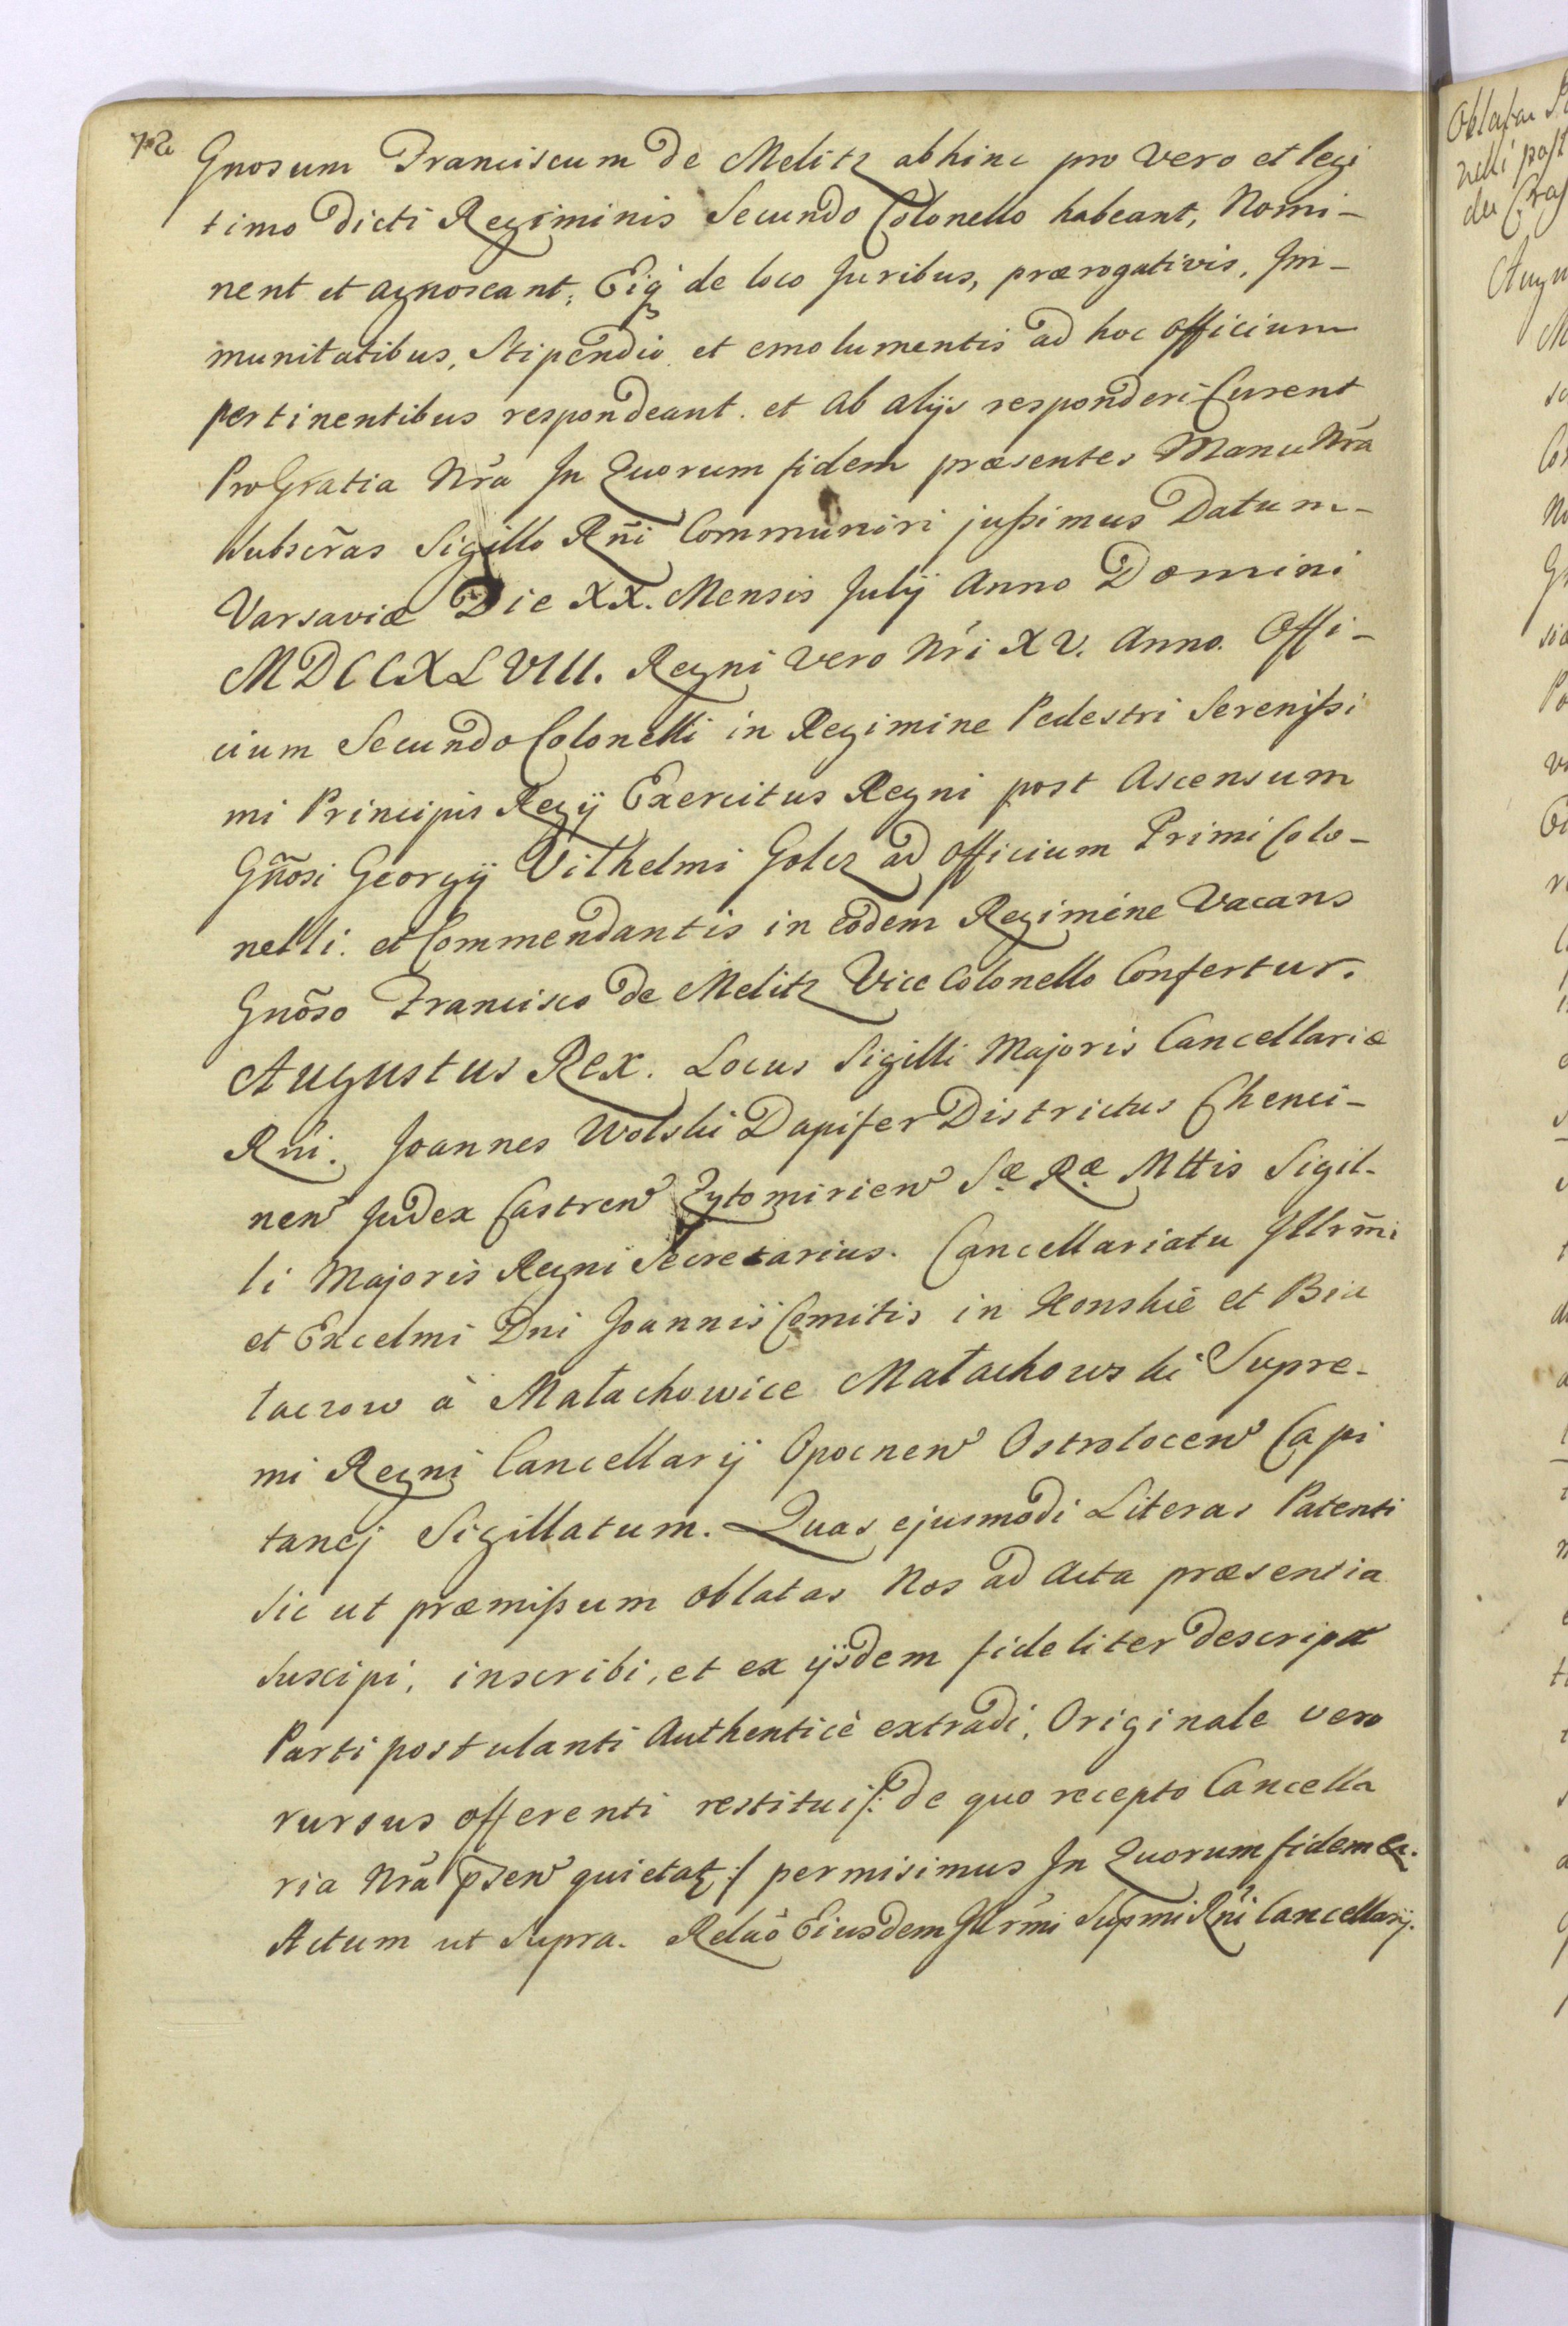 72
Gnosum Franciscum de Melitz abhinc pro vero et legi
timo dicti Regiminis Secundo Colonello habeant, Nomi-
nent et agnoscant, Eiq̃ de loco Juribus, prærogativis, Im-
munitatibus, Stipendio et emolumentis ad hoc officium
pertinentibus respondeant. et ab alijs responderi Curent
Pro Gratia Nr̃a In Quorum fidem præsentes Manu Nr̃a
Subscr̃as Sigillo Rñi Communiri jußimus Datum-
Varsaviæ Die XX. Mensis Julij Anno Domini
MDCCXLVIII. Regni vero Nr̃i XV. Anno. Offi-
cium Secundo Colonelli in Regimine Pedestri Serenißi
mi Principis Regij Exercitus Regni post Ascensum
Gñosi Georgij Vilhelmi Goltz ad officium Primi Colo-
nelli. et Commendantis in eodem Regimine Vacans
Gnõso Francisco de Melitz Vice Colonello Confertur.
Augustus Rex. Locus Sigilli Majoris Cancellariæ
Rni. Joannes Wolski Dapifer Districtus Chenci-
nen Judex Castren Zytomirien Sæ Ræ Mttis Sigil-
li Majoris Regni Secretarius. Cancellariatu Illrm̃i
et Excelmi Dni Joannis Comitis in Konskie et Bia
łaczow à Małachowice Małachowski Supre-
mi Regni Cancellarij Opocnen Ostrolocen Capi
tanej Sigillatum. Quas ejusmodi Literas Patenti
Sic ut præmißum oblatas Nos ad Acta præsentia
Suscipi, inscribi, et ex ijsdem fideliter descripta
Parti postulanti Authenticè extradi, Originale vero
rursus offerenti restitui /: de quo recepto Cancella
ria Nr̃a p̃sen quietat :/ permisimus In Quorum fidem &.
Actum ut Supra. Relaõ Eiusdem Illr̃mi Supmi Rñi Cancellarij.